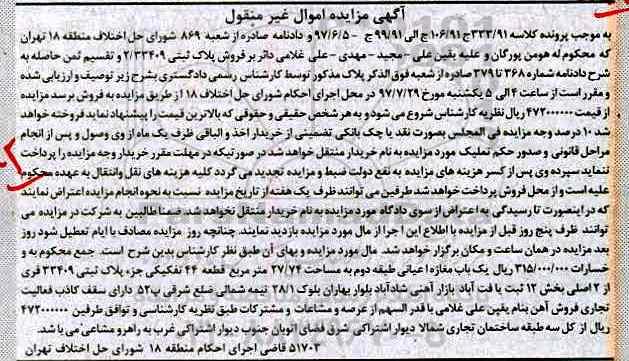 آگهی مزایده اموال غیر منقول
به موجب پرونده کلاسه ۳۳۳/۹۱ج ۱۰۶/۹۱ج الی ۹۹/۹۱ج - ۹۷/۶/۵ و دادنامه صادره از شعبه ۸۶۹ شورای حل اختلاف منطقه ۱۸ تهران
که محکوم له هومن پورگان و علیه یقین علی -مجید -مهدی -علی غلامی دائر بر فروش پلاک ثبتی ۲/۳۳۴۰۹ و تقسیم ثمن حاصله به
شرح دادنامه شماره ۳۶۸ تا ۳۷۹ صادره از شعبه فوق الذکر پلاک مذکور توسط کارشناس رسمی دادگستری بشرح زیر توصیف و ارزیابی شده
و مقرر است از ساعت ۴ الی ۵ یکشنبه مورخ ۹۷/۷/۲۹ در محل اجرای احکام شورای حل اختلاف ۱۸ از طریق مزایده به فروش برسد مزایده
از قیمت ۴۷۲۰۰۰۰۰۰۰ ریال نظریه کارشناس شروع می شود و به هر شخص حقیقی و حقوقی که بالاترین قیمت را پیشنهاد نماید فروخته خواهد
شد ۱۰ درصد وجه مزایده فی المجلس بصورت نقد یا چک بانکی تضمینی از خریدار اخذ و الباقی ظرف یک ماه از وی وصول و پس از انجام
مراحل قانونی و صدور حکم تملیک مورد مزایده به نام خریدار منتقل خواهد شد در صورتیکه در مهلت مقرر خریدار وجه مزایده را پرداخت
ننماید سپرده وی پس از کسر هزینه های مزایده به نفع دولت ضبط و مزایده تجدید می گردد کلیه هزینه های نقل وانتقال به عهده محکوم
علیه است و از محل فروش پرداخت خواهد شد طرفین می توانند ظرف یک هفته از تاریخ مزایده نسبت به نحوه انجام مزایده اعتراض نمایند
که در اینصورت تا رسیدگی به اعتراض از سوی دادگاه مورد مزایده به نام خریدار منتقل نخواهد شد. ضمنا طالبین به شرکت در مزایده می
توانند ظرف پنج روز قبل از مزایده با اطلاع این اجرا از مال مورد مزایده بازدید نمایند. چنانچه روز مزایده مصادف با ایام تعطیل شود روز
بعد مزایده در همان ساعت و مکان برگزار خواهد شد. مال مورد مزایده و بهای آن طبق نظر کارشناس بدین شرح است. جمع محکوم به و
خسارات ۳۱۵/۰۰۰/۰۰۰ ریال یک باب مغازه اعیانی طبقه دوم به مساحت ۲۷/۷۴ متر مربع قطعه ۴۴ تفکیکی جزء پلاک ثبتی ۳۳۴۰۹ فری
از ۲ اصلی بخش ۱۲ ثبت یا فت آباد بازار آهنی شادآباد بلوار بهاران بلوک ۲۸/۱ نیمه شمالی ضلع شرقی پ۵۲ دارای سقف کاذب فعالیت
تجاری فروش آهن بنام یقین علی غلامی با قدر السهم از عرصه و مشاعات و مشترکات طبق نظریه کارشناسی و توافق طرفین ۴۷۲۰۰۰۰۰۰۰
ریال از کل سه طبقه ساختمان تجاری شمالا دیوار اشتراکی شرق فضای اتوبان جنوب دیوار اشتراکی غرب به راهرو مشاعی می باشد.
۵۱۷۰۳ قاضی اجرای احکام منطقه ۱۸ شورای حل اختلاف تهران